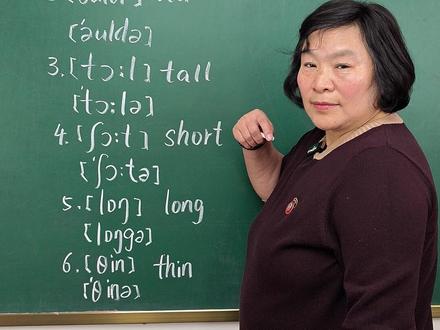 ['əuldə]
3. [tɔ:l] tall
['tɔ:lə]
4. [ʃɔ:t] short
['ʃɔ:tə]
5. [lɔŋ] long
[lɔŋgə]
6. [θin] thin
['θinə]